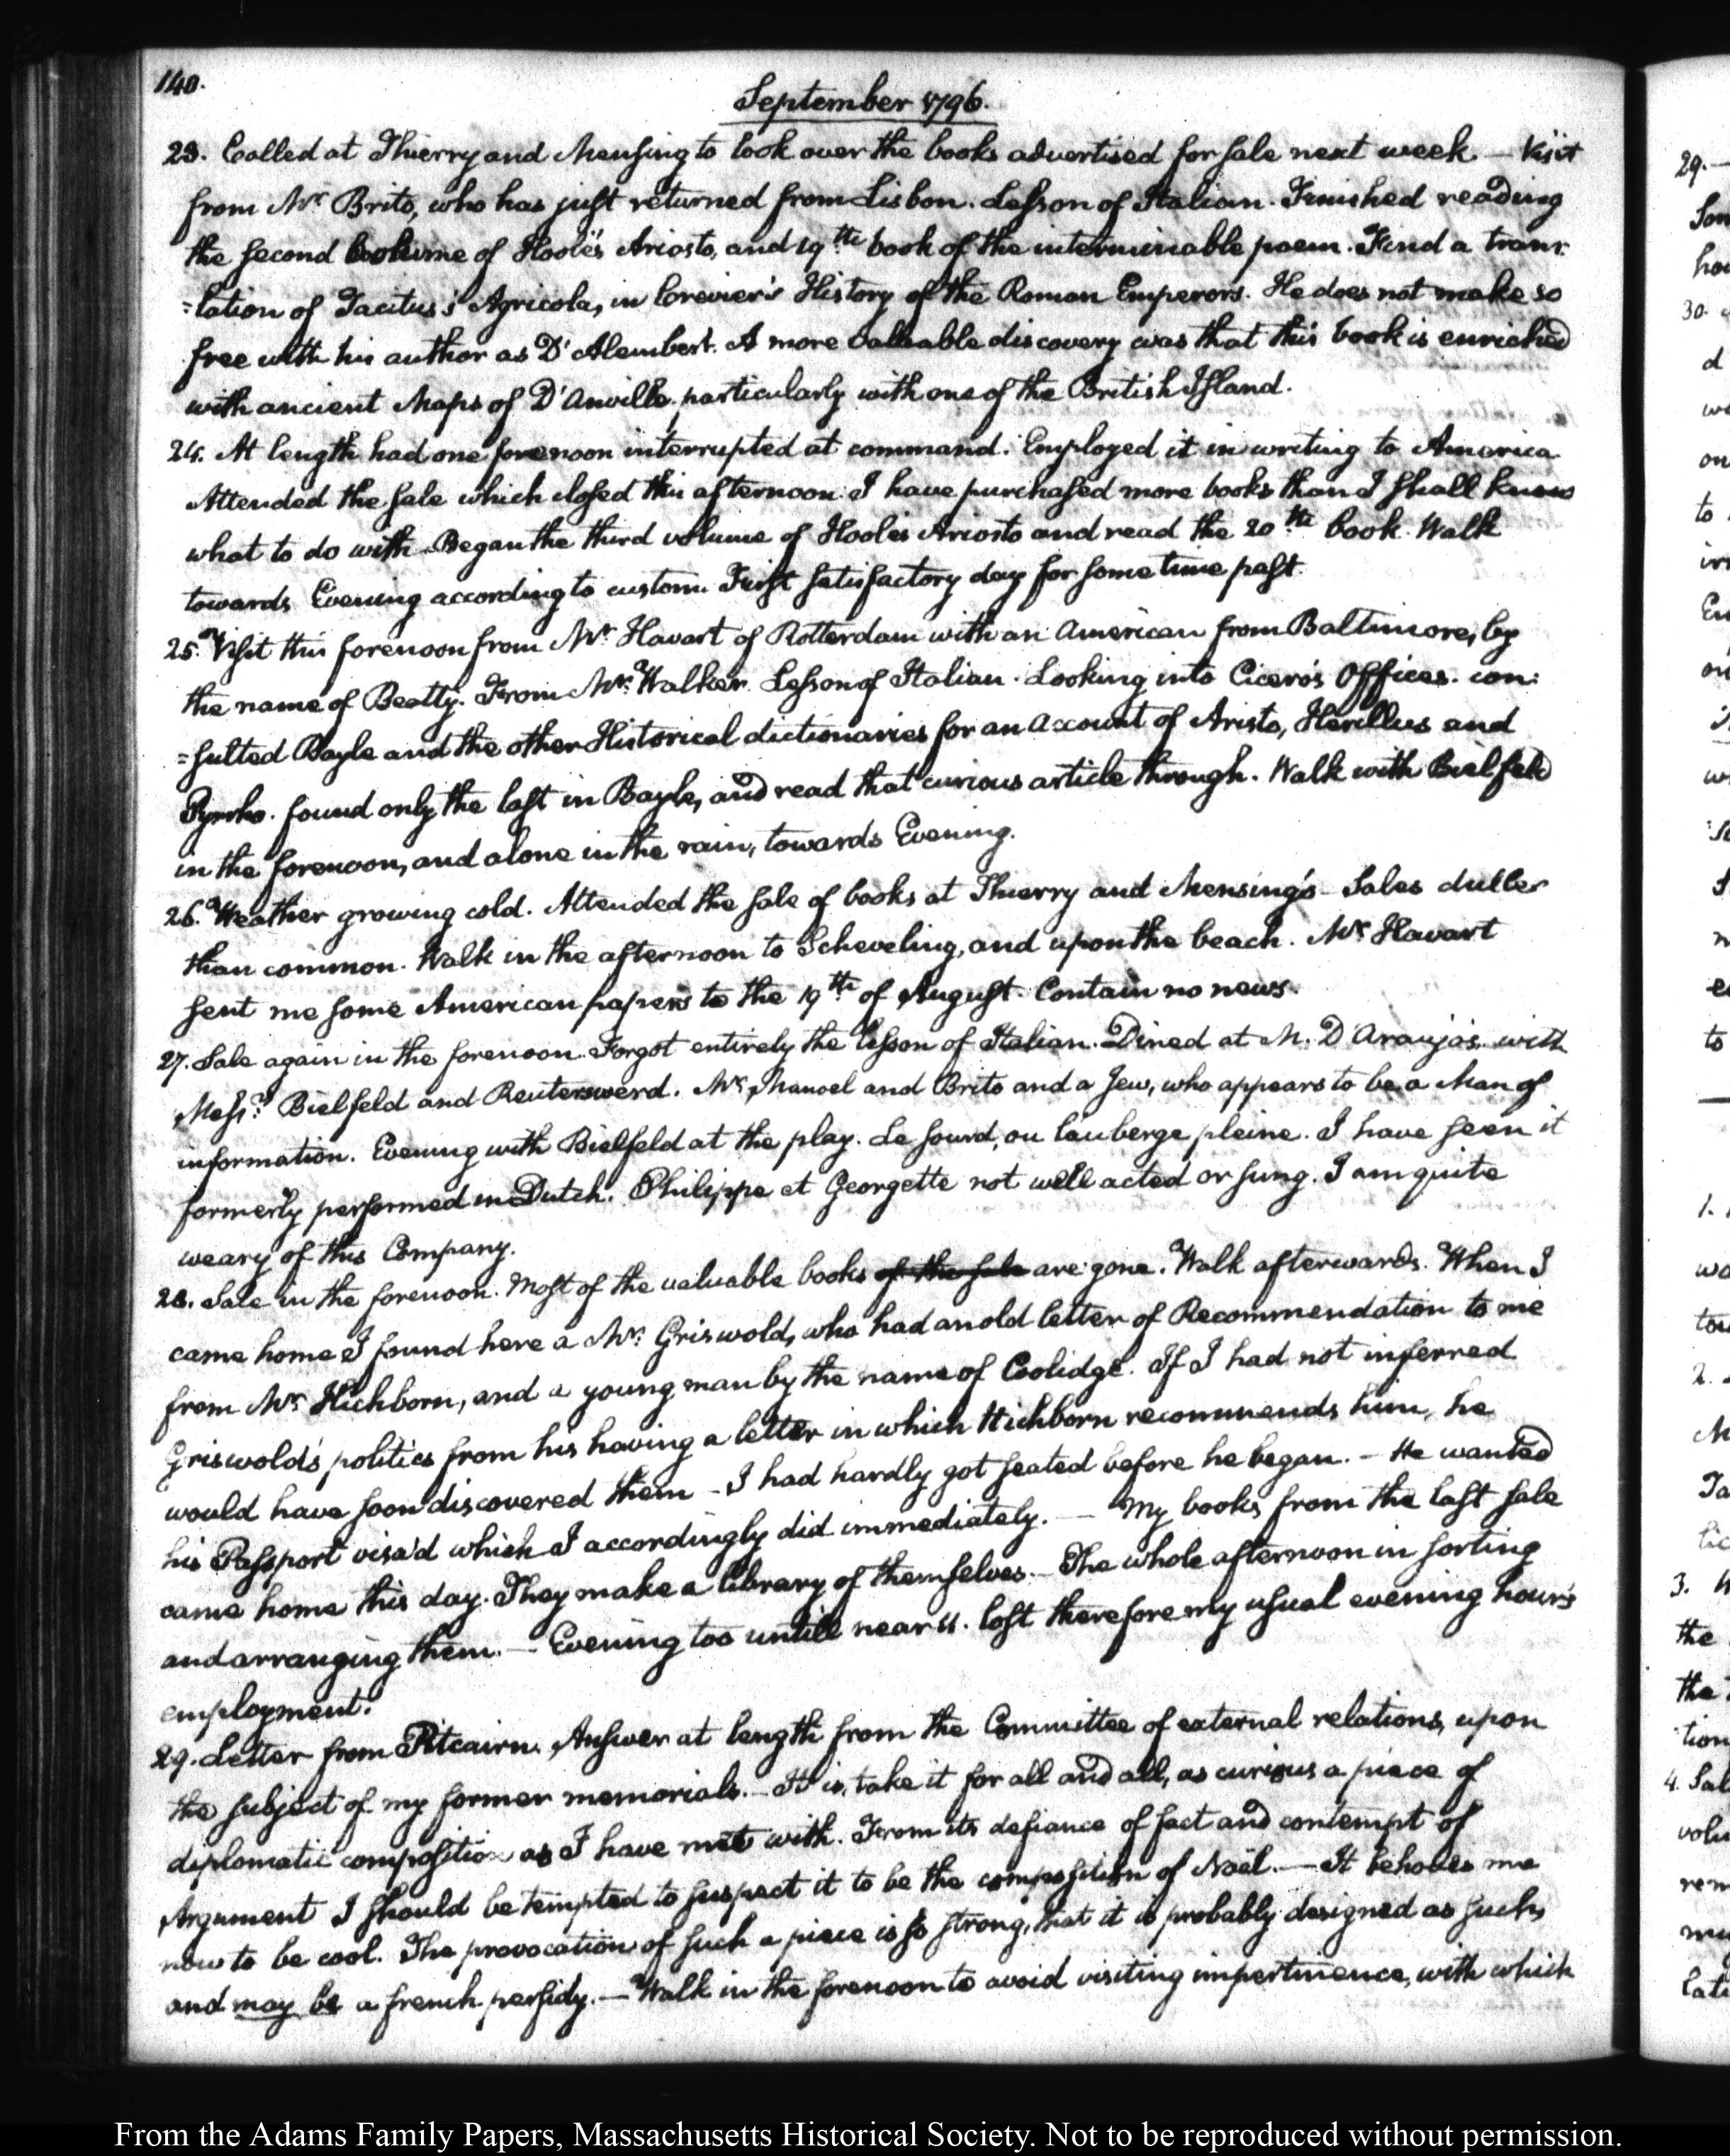 140.
September 1796.
23. Called at Thierry and Mensing to look over the books advertised for sale next week. — Visit
from Mr. Brito, who has just returned from Lisbon. Lesson of Italian. Finished reading
the second volume of Hoole's Ariosto, and 19th book of the interminable poem. Find a trans:
=lation of Tacitus's Agricola, in Crevier's History of the Roman Emperors. He does not make so
free with his author as D'Alembert. A more valuable discovery was that this book is enriched
with ancient Maps of D'Anville. particularly with one of the British Island.
24. At length had one forenoon interrupted at command. Employed it in writing to America
Attended the sale which closed this afternoon. I have purchased more books than I shall know
what to do with. Began the third volume of Hoole's Ariosto and read the 20th book. Walk
towards Evening according to custom. First satisfactory day for some time past.
25. Visit this forenoon from Mr. Havart of Rotterdam with an American from Baltimore, by
the name of Beatty. From Mr. Walker. Lesson of Italian. Looking into Cicero's Offices. con:
=sulted Bayle and the other Historical dictionaries for an account of Aristo, Herillus and
Pyrrho. found only the last in Bayle, and read that curious article through. Walk with Bielfeld
in the forenoon, and alone in the rain, towards Evening.
26. Weather growing cold. Attended the sale of books at Thierry and Mensing's. Sales duller
than common. Walk in the afternoon to Scheveling, and upon the beach. Mr. Havart
sent me some American papers to the 19th of August. Contain no news.
27. Sale again in the forenoon. Forgot entirely the lesson of Italian. Dined at M. D'Araujo's. with
Messrs. Bielfeld and Reuterswerd. Mr. Manoel and Brito and a Jew, who appears to be a Man of
information. Evening with Bielfeld at the play. Le sourd, ou l'auberge pleine. I have seen it
formerly performed in Dutch. Philippe et Georgette not well acted or sung. I am quite
weary of this Company.
28. Sale in the forenoon. Most of the valuable books of the sale are gone. Walk afterwards. When I
came home I found here a Mr. Griswold, who had an old letter of Recommendation to me
from Mr. Hichborn, and a young man by the name of Coolidge. If I had not inferred
Griswold's politics from his having a letter in which Hichborn recommends him, he
would have soon discovered them – I had hardly got seated before he began. – He wanted
his Passport visa'd which I accordingly did immediately. — My books from the last sale
came home this day. They make a library of themselves. – The whole afternoon in sorting
and arranging them. — Evening too untill near 11. lost therefore my usual evening hour's
employment.
29. Letter from Pitcairn. Answer at length from the Committee of external relations, upon
the subject of my former memorials. – It is, take it for all and all, as curious a piece of
diplomatic composition as I have met with. From its defiance of fact and contempt of
Argument I should be tempted to suspect it to be the composition of Noël. — It behoves me
now to be cool. The provocation of such a piece is so strong, that it is probably designed as such,
and may be a french perfidy. — Walk in the forenoon to avoid visiting impertinence, with which
29. —
30.
d
on
to
to
1.
2.
3.
the
the
tion
4. Sal
volu
From the Adams Family Papers, Massachusetts Historical Society. Not to be reproduced without permission.